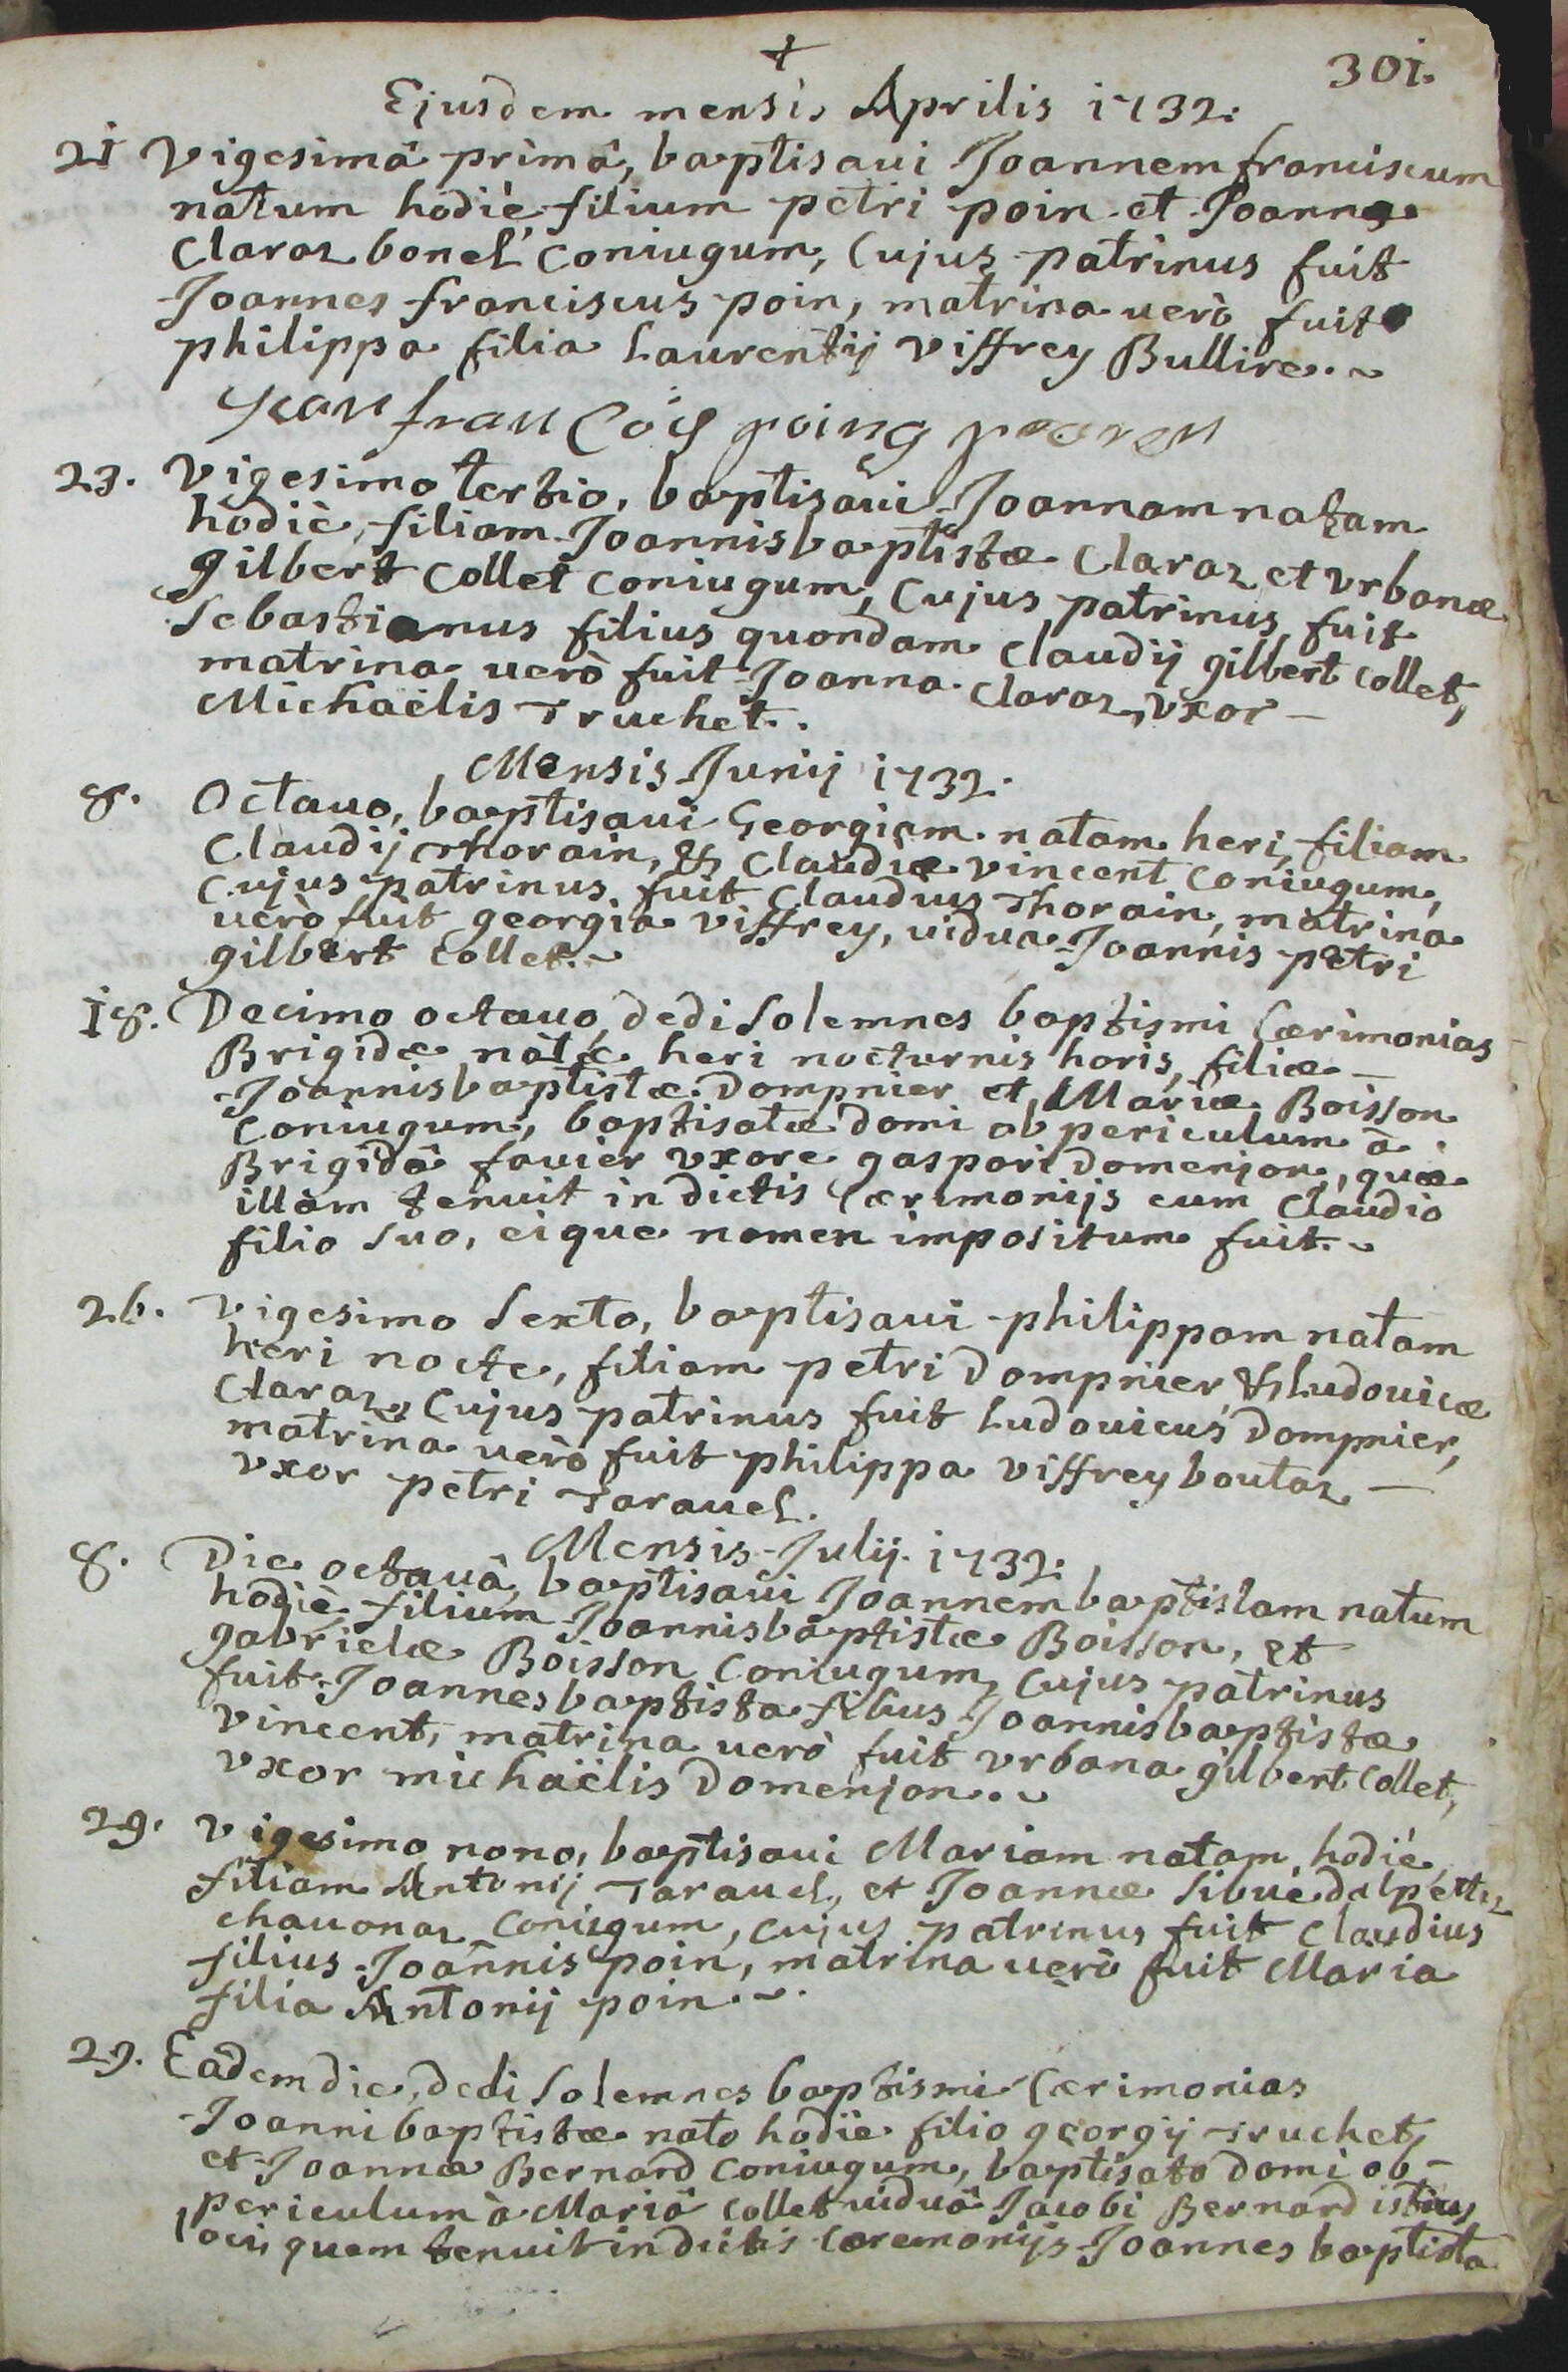 +
301.
Ejusdem mensis Aprilis 1732.
21 Vigesimâ primâ, baptisaui Joannem franciscum
natum hodiè filium petri poin et Joannæ
Claraz bonel coniugum, Cujus patrinus fuit
Joannes franciscus poin, matrina uerò fuit
philippa filia Laurentij Viffrey Bullire.
Jean francois poing paren
23. Vigesimo tertio, baptisaui Joannam natam
hodiè, filiam Joannisbaptistæ Claraz et Vrbanæ
gilbert Collet coniugum, Cujus patrinus fuit
Sebastianus filius quondam Claudij gilbert Collet,
matrina uerò fuit Joanna Claraz, Vxor -
Michaëlis Truchet.
Mensis Junij 1732.
8. Octauo, baptisaui Georgiam natam heri, filiam
Claudij Thorain, & Claudiæ Vincent Coniugum,
Cujus patrinus fuit Claudius Thorain, matrina
uerò fuit georgia Viffrey, uidua Joannis petri
gilbert Collet.
18. Decimo octauo, dedi Solemnes baptismi Cærimonias
Brigidæ natæ heri nocturnis horis, filiæ -
Joannisbaptistæ Dompnier et Mariæ Boisson
Coniugum, baptisatæ domi ob periculum à
Brigidâ fauier Vxore gaspari Domenjon, quæ
illam tenuit in dictis Cærimonijs cum Claudio
filio suo, eique nomen impositum fuit.
26. Vigesimo Sexto, baptisaui philippam natam
heri nocte, filiam petri Dompnier, & Ludouicæ
Claraz, Cujus patrinus fuit Ludouicus Dompnier,
matrina uerò fuit philippa Viffrey boutaz -
Vxor petri Tarauel.
Mensis Julij 1732.
8. Die octauâ, baptisaui Joannembaptistam natum
hodiè, filium Joannisbaptistæ Boisson, et
gabrielæ Boisson Coniugum, Cujus patrinus
fuit Joannesbaptista filius Joannisbaptistæ
Vincent, matrina uerò fuit Vrbana gilbert Collet,
Vxor michaëlis Domenjon.
29. Vigesimo nono, baptisaui Mariam natam hodiè
filiam Antonij Tarauel, et Joannæ Sibué
chauonaz Coniugum, cujus patrinus fuit Claudius
filius Joannis poin, matrina uerò fuit Maria
filia Antonij poin.
29. Eâdem die, dedi Solemnes baptismi Cærimonias
Joannibaptistæ nato hodiè filio georgij Truchet,
et Joannæ Bernard Coniugum, baptisato domi ob -
periculum à Mariâ Collet uiduâ Jacobi Bernard istius
loci, quem tenuit in dictis Cæremonijs Joannes baptista